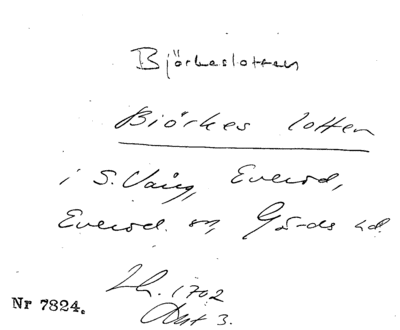 Björkeslotten
Biörkes lotten
i S. Vång, Everöd,
Everöd sn, Gärds hd.
Lh. 1702
Akt 3.
Nr 7824.